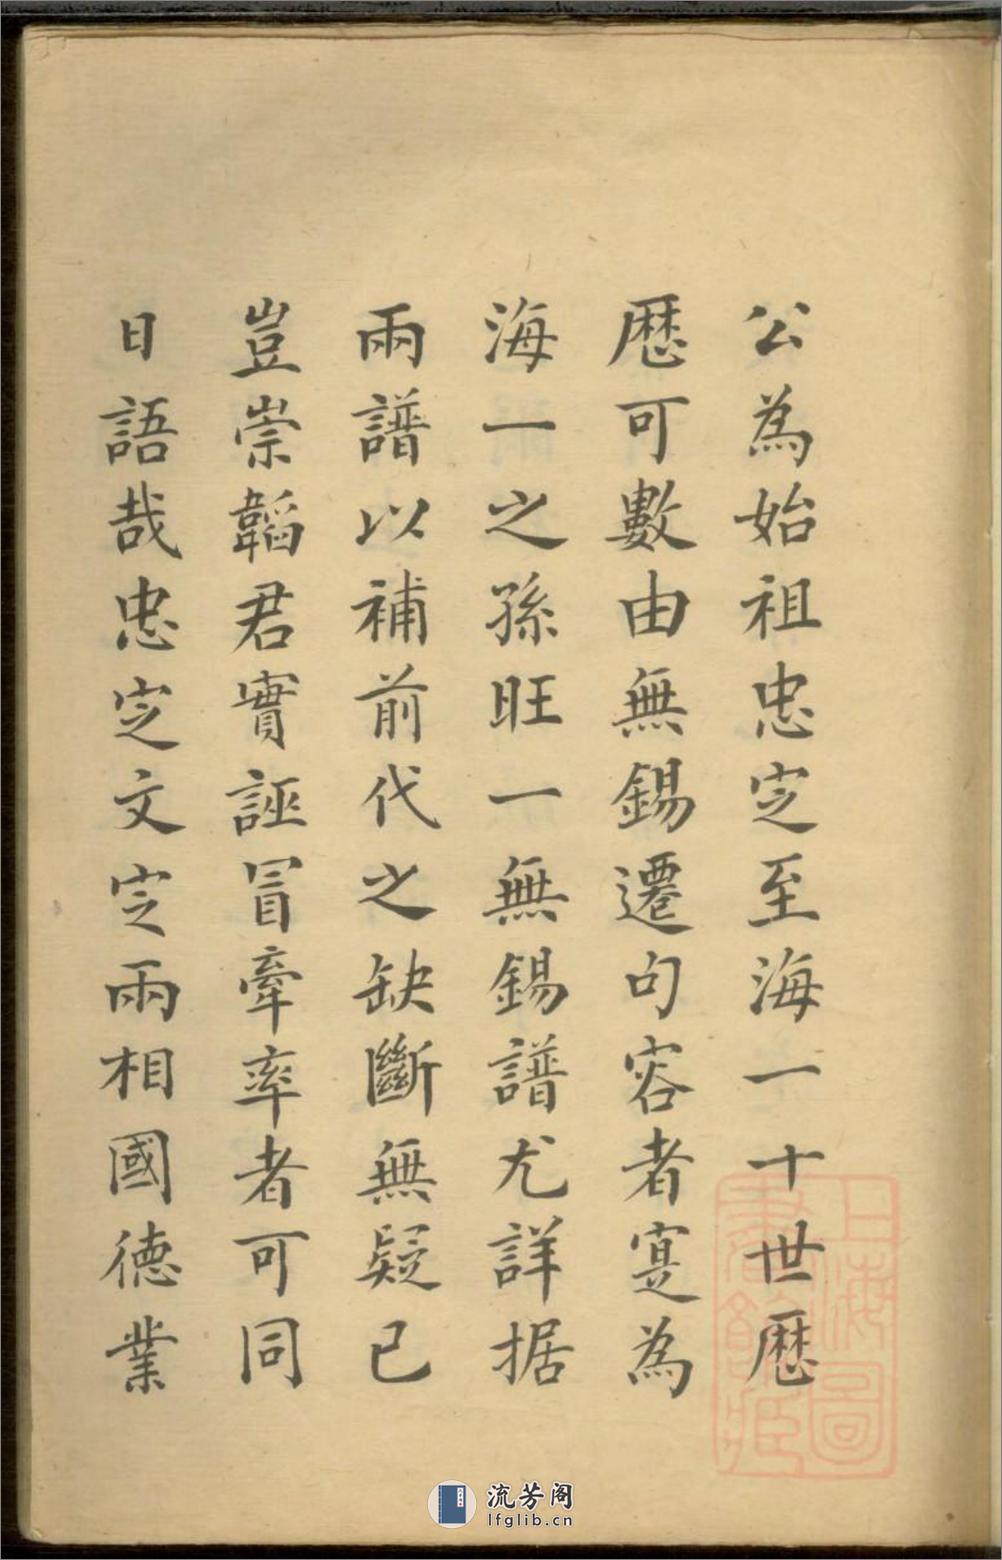 公為始祖忠定至海一十世歷
歷可數由無錫遷句容者寔為
海一之孫旺一無錫譜尤詳据
兩譜以補前代之缺斷無疑已
豈崇韜君實誣冒牽率者可同
日語哉忠定文定兩相國德業
上海圖
書館藏
流芳阁
lfglib.cn